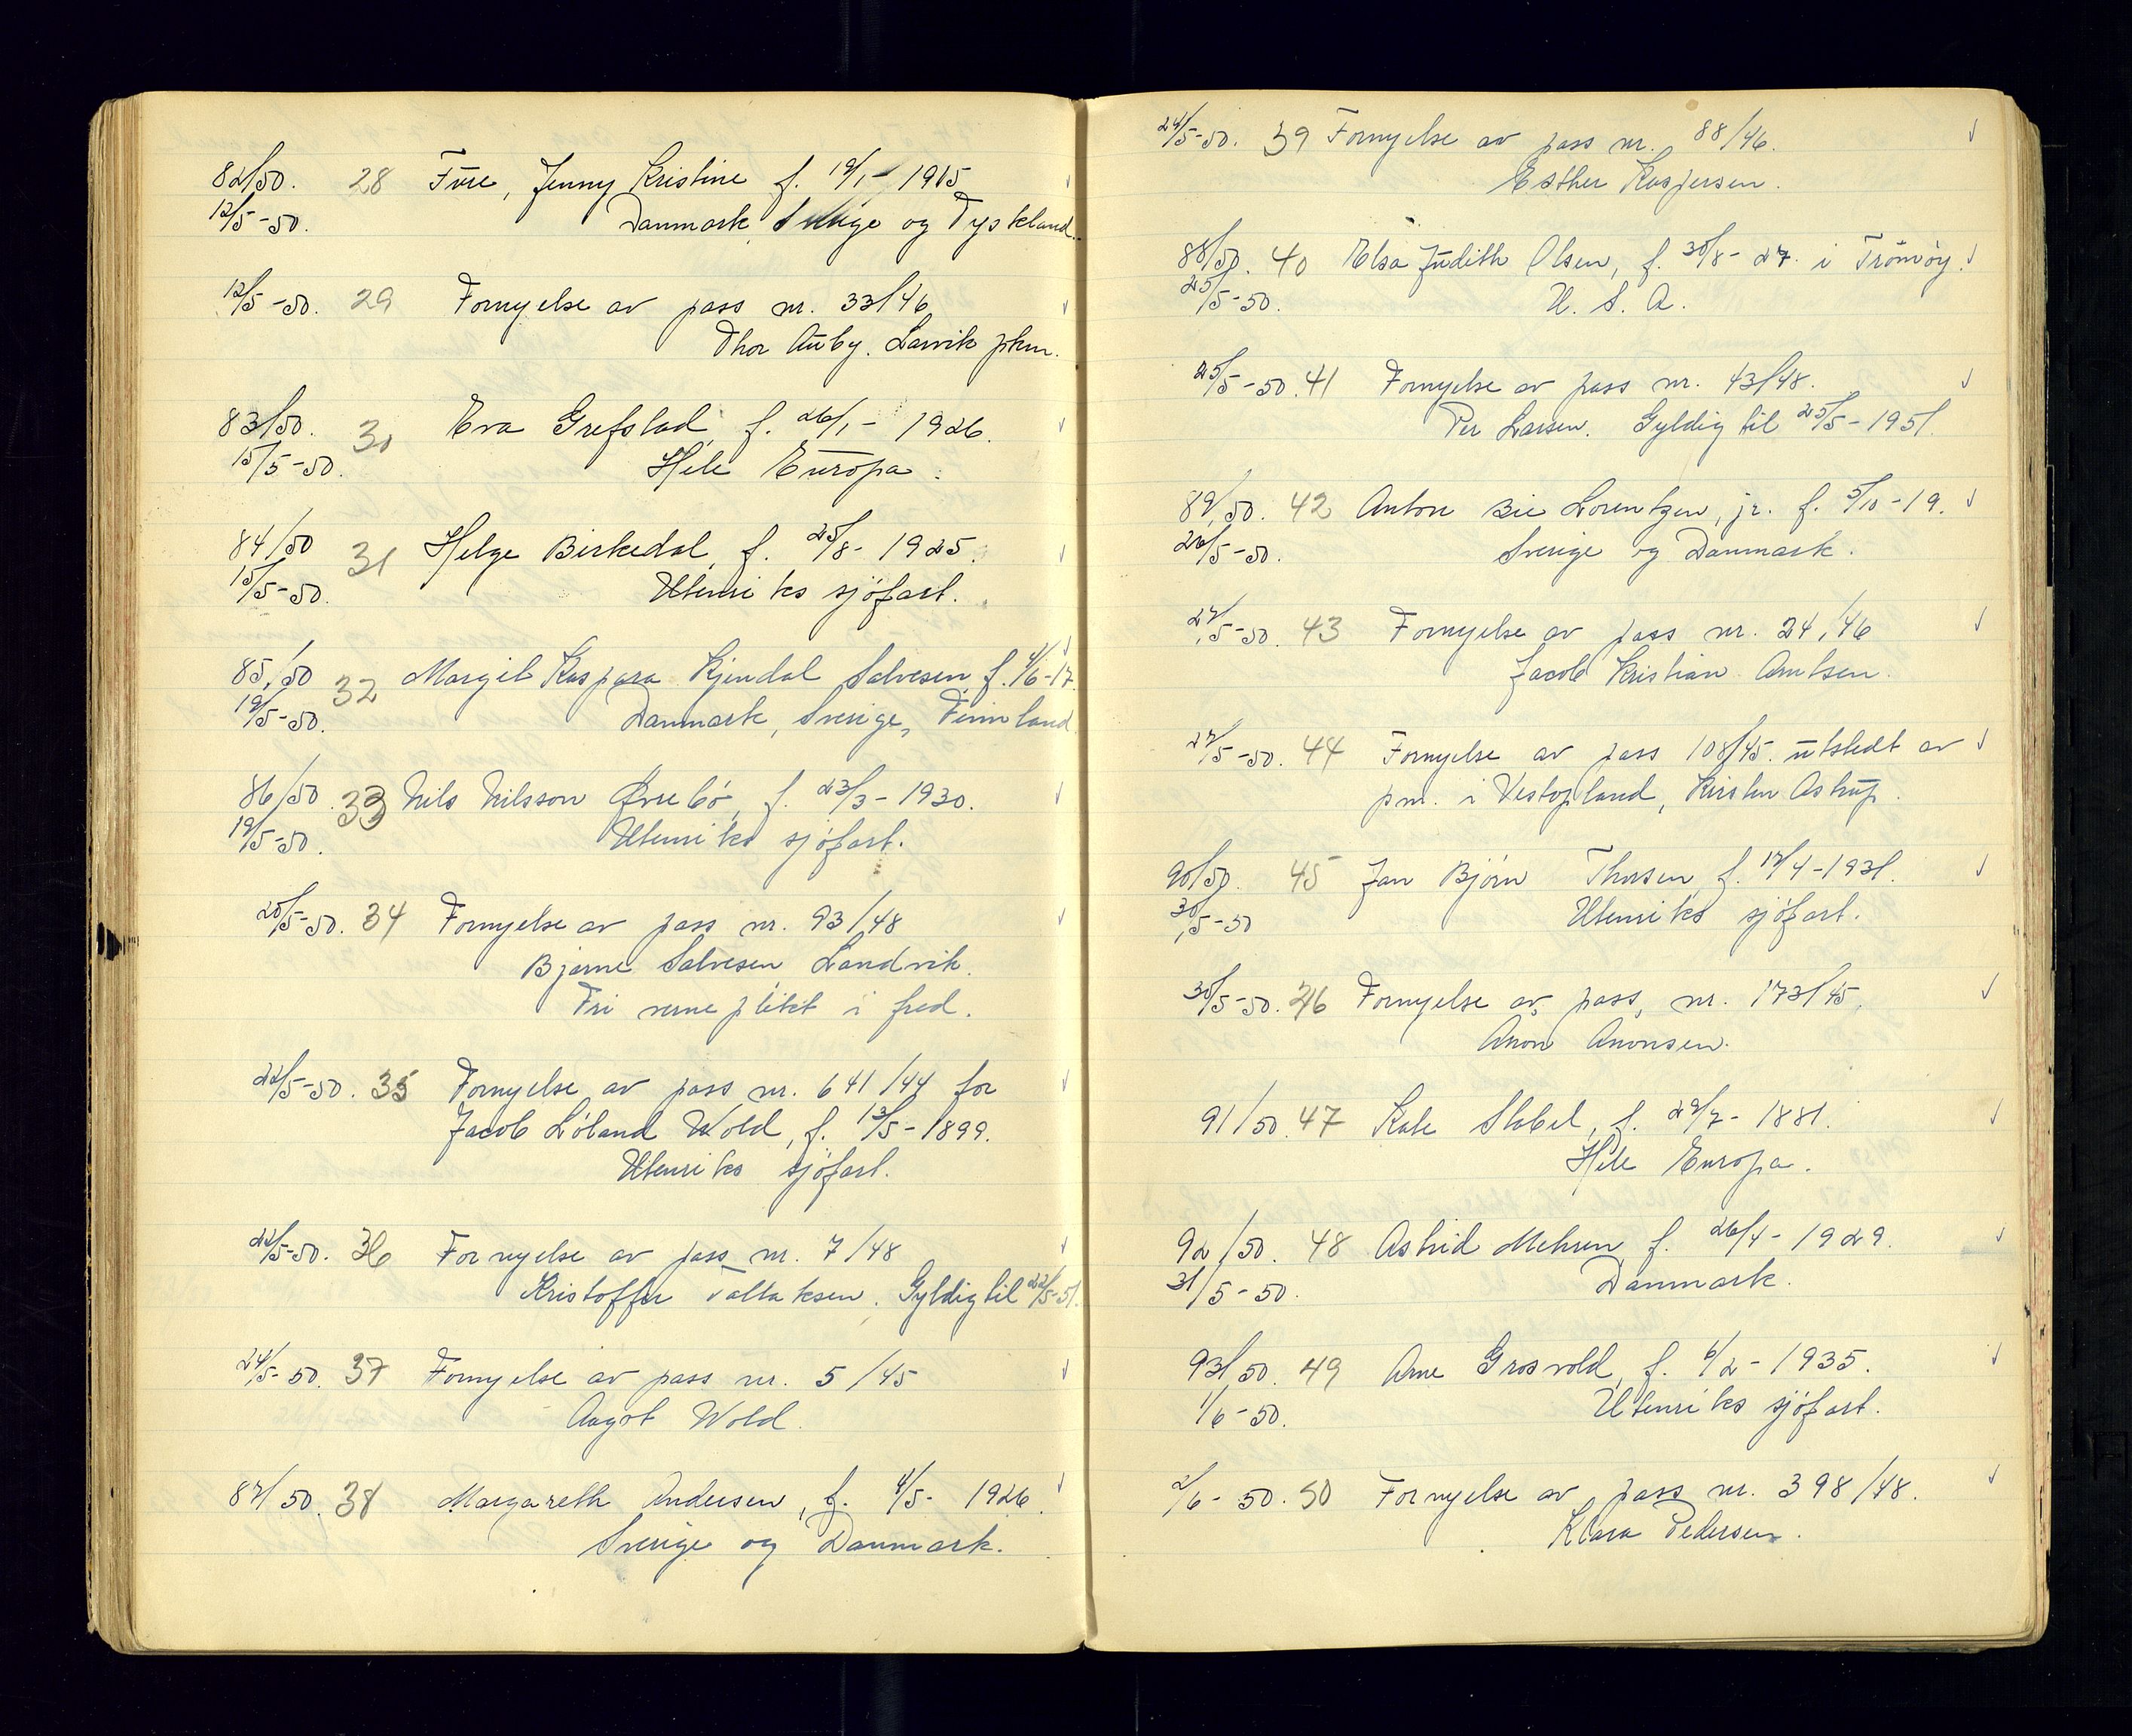 82/50. 28 Fure, Jenny Kristine f. 19/1 - 1915
12/5-50. Danmark, Sverige og Tyskland.
12/5-50. 29 Fornyelse av pass nr. 33/46
Thor Auby. Larvik pkm.
83/50. 30 Eva Grefstad, f. 26/1 - 1926.
15/5-50. Hele Europa.
84/50 31 Helge Birkedal, f. 25/8 - 1925.
15/5-50. Utenriks sjöfart.
85/50 32 Margit Kaspara Kjendal Salvesen f. 4/6-17
19/5-50. Danmark, Sverige, Finnland
86/50. 33 Nils Nilsson Øvrebö, f. 23/3 - 1930.
19/5-50. Utenriks sjöfart.
20/5-50. 34 Fornyelse av pass nr. 93/48
Bjarne Salvesen Landvik.
Fri verneplikt i fred.
22/5-50. 35 Fornyelse av pass nr. 641/44 for
Jacob Löland Wold, f. 13/5 - 1899.
Utenriks sjöfart.
22/5-50. 36 Fornyelse av pass nr. 7/48
Kristoffer Tallaksen. Gyldig til 22/5-51.
24/5-50. 37 Fornyelse av pass nr. 5/45
Aagot Wold.
87/50. 38 Margareth Andersen, f. 4/5 - 1926.
Sverige og Danmark.
24/5-50. 39 Fornyelse av pass nr. 88/46.
Esther Kaspersen.
88/50. 40 Elsa Judith Olsen, f. 30/8 - 27. i Tromöy.
25/5-50. U. S. A.
25/5-50. 41 Fornyelse av pass nr. 43/48.
Per Larsen. Gyldig til 25/5 - 1951.
89/50. 42 Anton Bie Lorentzen, jr. f. 5/10 - 19.
26/5-50. Sverige og Danmark.
27/5-50. 43 Fornyelse av pass nr. 24/46
Jacob Kristian Arntsen.
27/5-50. 44 Fornyelse av pass 108/45. utstedt av
pm. i Vestopland, Kirsten Astrup.
90/50. 45 Jan Björn Thorsen, f. 17/4 - 1931.
30/5-50 Utenriks sjöfart.
30/5-50. 46 Fornyelse av pass nr. 173/45.
Anon Anonsen.
91/50. 47 Kate Stabel, f. 29/7 - 1881.
Hele Europa.
92/50. 48 Astrid Mehren f. 26/4 - 1929.
31/5-50. Danmark.
93/50. 49 Arne Grosvold, f. 6/2 - 1935.
1/6-50. Utenriks sjöfart.
2/6-50. 50 Fornyelse av pass nr. 398/48.
Klara Pedersen.